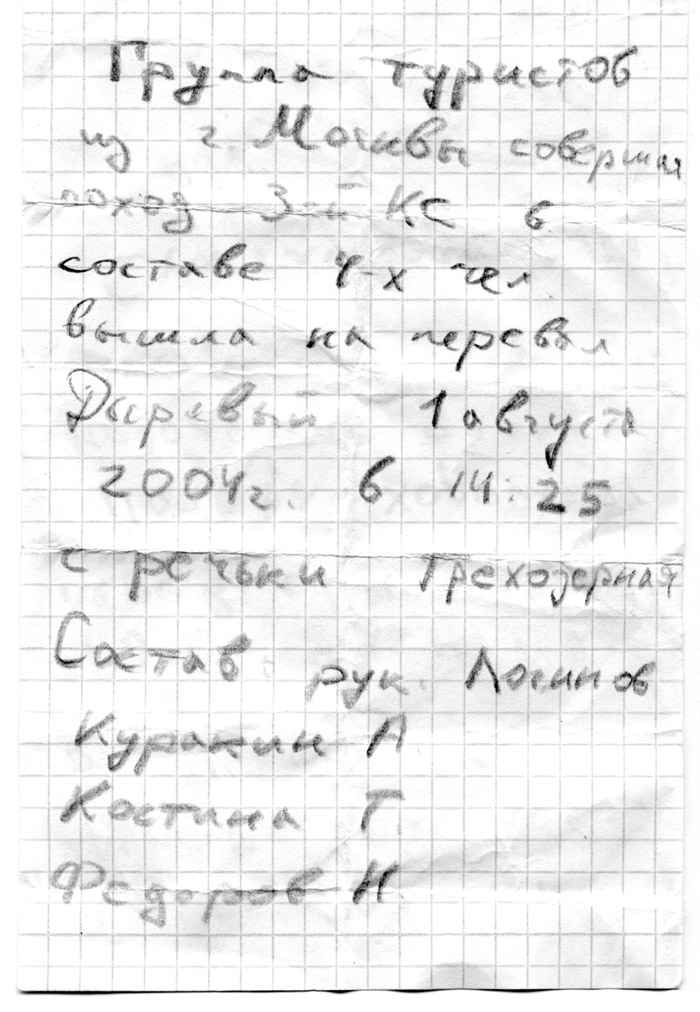 Группа туристов
из г. Москвы соверша
поход 3-й КС в
составе 4-х чел.
вышла на перевал
Дырявый 1 августа
2004г. в 14:25
с речьки Трехозерная
Состав рук. Логинов
Куракин А
Костина Т.
Федоров Н.